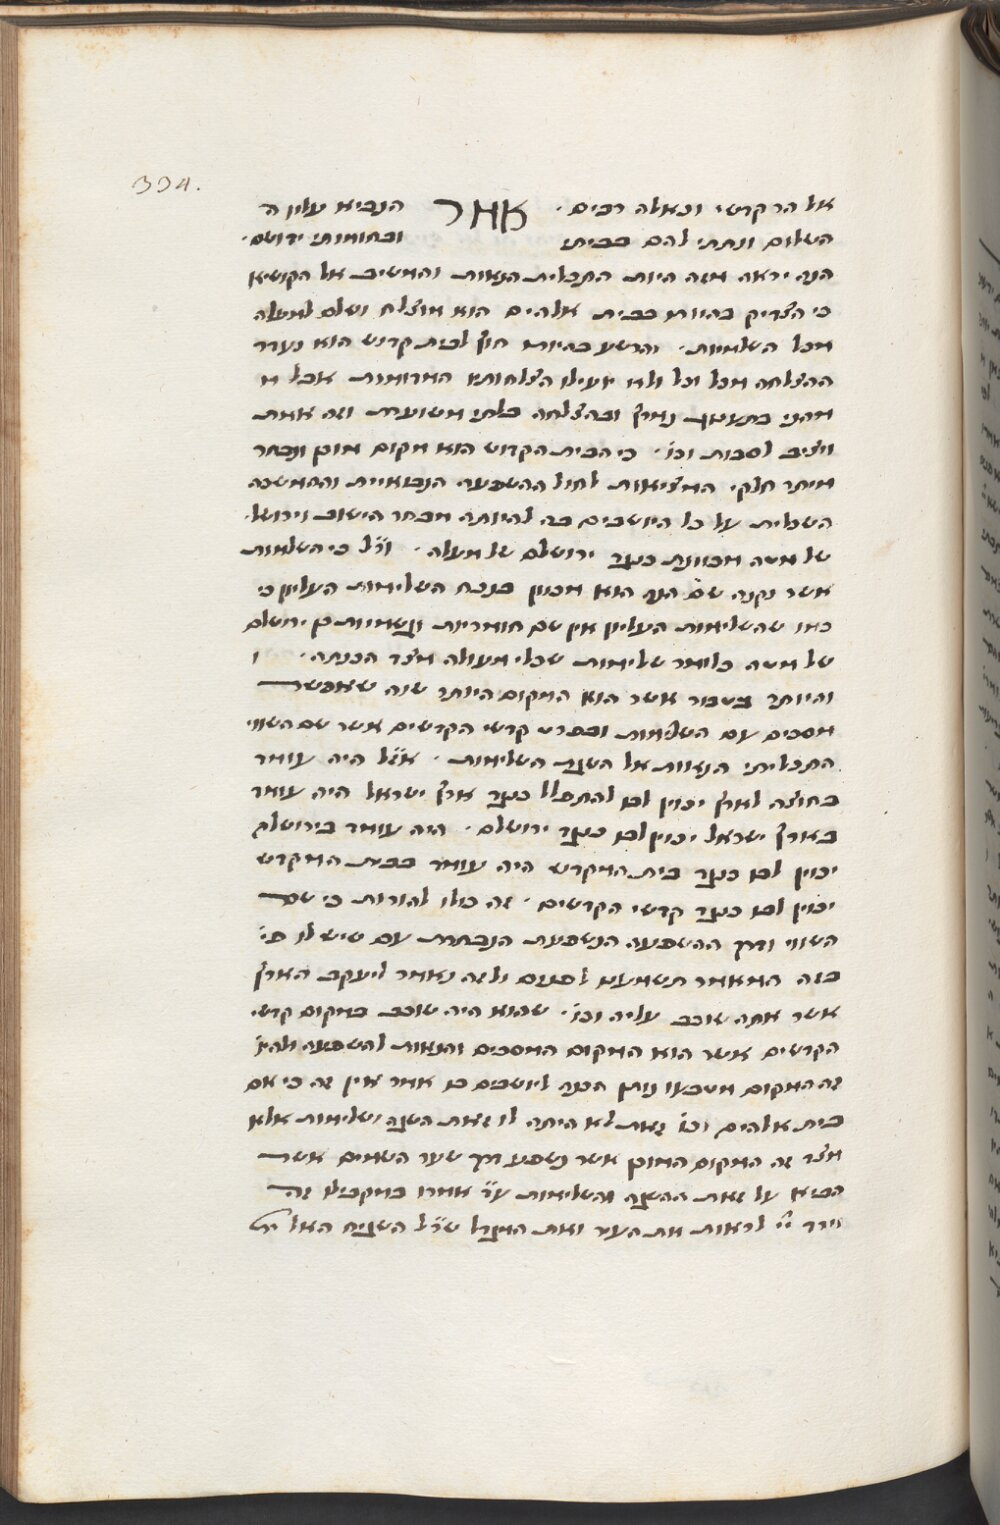 334.
אל הר קדשי וכאלה רבים. אמר הנביא עליו ה
השלום ונתתי להם בביתי ובחומותי ידושם.
הנה יראה מזה היות התכלית הנאות והמשיב אל הקושיא
כי הצדיק בהיותו בבית אלהים הוא מוצלח ושלם למעלה
מכל השלמיות. והרשע בהיות חוץ לבית קדש הוא נעדר
ההצלחה מכל וכל ולא יועילו הצלחותיו המדומות אבל
בארץ ובהצלחה בלתי משוערת וזה אמת
ויציב לסבות וכו׳. כי הבית הקדוש הוא מקום מוכן ונבחר
מיתר חלקי המציאות לחול ההשפעה הנבואיית וההמשכה
השכלית על כל היושבים בה להיותה מבחר הישוב וירושל׳
של מטה מכוונת כנגד ירושלם של מעלה. ור״ל כי השלמות
אשר נקנה שם הנה הוא מכוון בנכח השלימות העליון כי
כמו שהשלימות העליון אין שם חומריות וגשמיות כן ירושלם
של מטה כלומר שלימות שכלי מעולה מצד הכנתה. ו
והיותר אשר הוא המקום היותר שוה שאפשר
מסכים עם השלמות ובפרט קדשי הקדשים אשר שם השווי
התכליתי הנאות אל השגת השלימות. אז״ל היה עומד
בחוצה לארץ יכוין לבו להתפלל כנגד ארץ ישראל היה עומד
בארץ ישראל יכוין לבו כנגד ירושלם. היה עומד בירושלם
יכוין לבו כנגד בית המקדש היה עומד בבית המקדש
יכוין לבו כנגד קדשי הקדשים. זה כולו להורות כי שם
השווי ודרך ההשפעה הנשפעת הנבחרת עם שיש לו פי׳
בזה המאמר תשמענו לפעמים ולזה נאמר ליעקב הארץ
אשר אתה שוכב עליה וכו׳. שהוא היה שוכב במקום קדשי
הקדשים אשר הוא המקום המסכים והנאות להשפעה
זה המקום מטבעו נותן הכנה ליושבים בו אמר אין זה כי אם
בית אלהים וכו׳ זאת לא היתה לו זאת השגה ושלימות אלא
מצד זה המקום המוכן אשר נשפע דרך שער השמים אשר
הביא על זאת ההשגה והשלימות ע״ד אמרו במקבילו זה
וירד יי׳ לראות את העיר ואת המגדל שר״ל השגיח האל ית׳